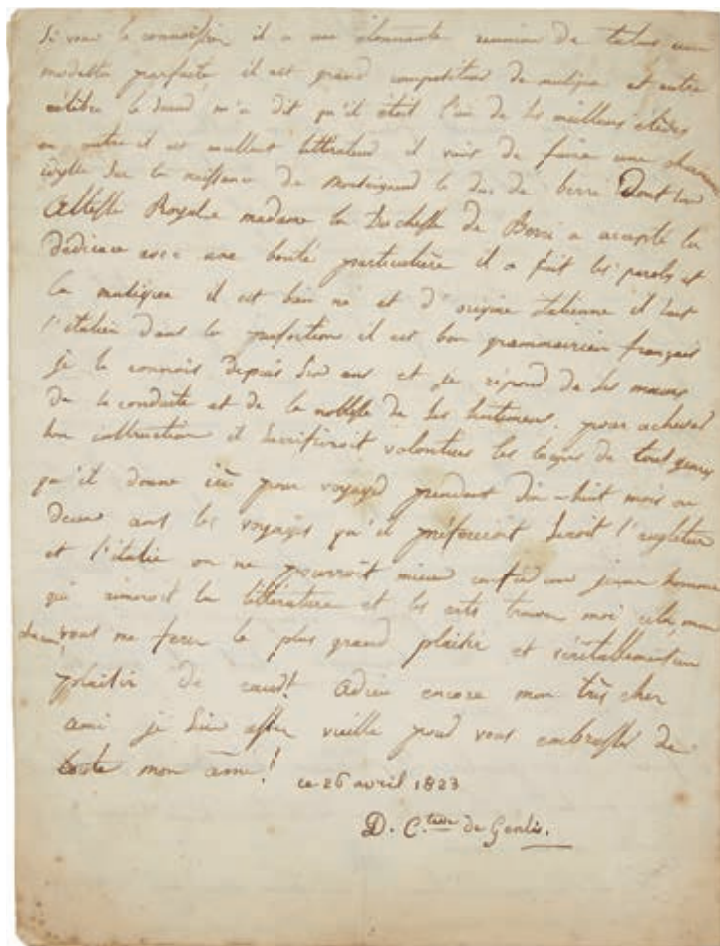 Si vous le connoissiez il a une étonnante reunion de talens une
modestie parfaite il est grand compositeur de musique et
célèbre m'a dit qu'il étoit l'un de ses meilleurs élèves
en outre il est excellent littérateur il vient de faire une
idylle sur la naissance de Monseigneur le duc de berri dont son
Altesse Royale madame la Duchesse de Berri a accepté la
dédicace avec une bonté particulière il a fait les paroles et
la musique il est bien né et d'origine italienne il sait
l'italien dans la perfection il est bon grammairien français
je le connois depuis six ans et je répond de ses mœurs
de sa conduite et de la noblesse de ses sentimens. pour achever
son instruction il sacrifieroit volontiers les leçons de tout genre
qu'il donne ici pour voyager pendant dix-huit mois ou
deux ans les voyages qu'il préfereroit seroit l'angleterre
et l'italie on ne pourroit mieux confier un jeune homme
qui aimeroit la littérature et les arts trouvez moi cela, mon
cher ami, vous me ferez le plus grand plaisir et véritablement un
plaisir de cœur! adieu encore mon très cher
ami je suis assez vieille pour vous embrasser de
toute mon âme!
ce 26 avril 1823
D. C.tesse de Genlis.